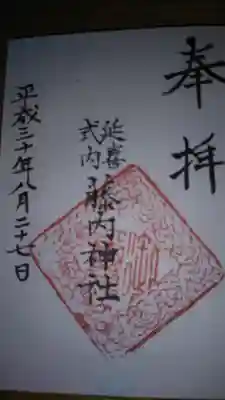 奉拝
延喜
式内
藤内神社
平成三十年八月二十七日